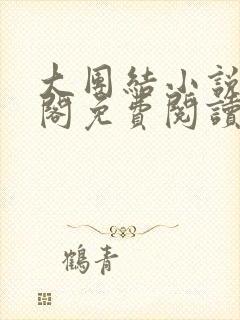 大團結小說
閣免費閱讀
鶴青